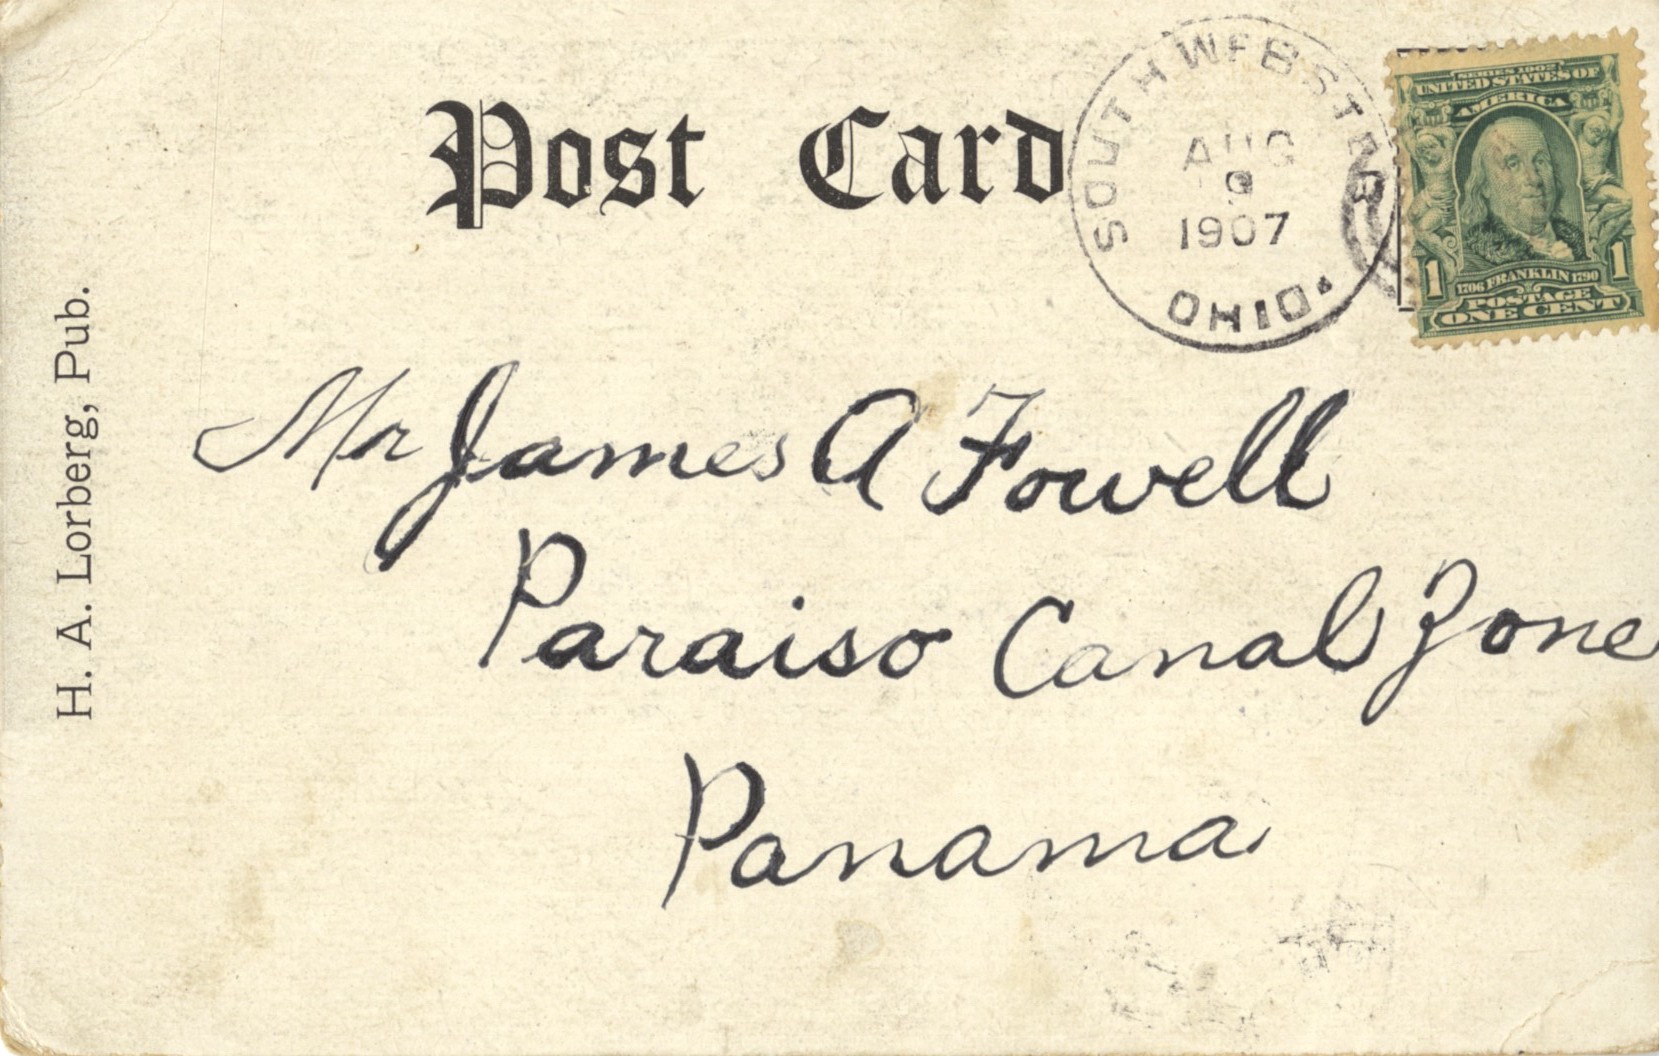 Post Card
SOUTH WEBSTER
AUG
9
1907
OHIO.
SERIES 1902
UNITED STATES OF
AMERICA
1 1
1706 FRANKLIN 1790
POSTAGE
ONE CENT
H. A. Lorberg, Pub.
Mr James A Fowell
Paraiso Canal Zone
Panama